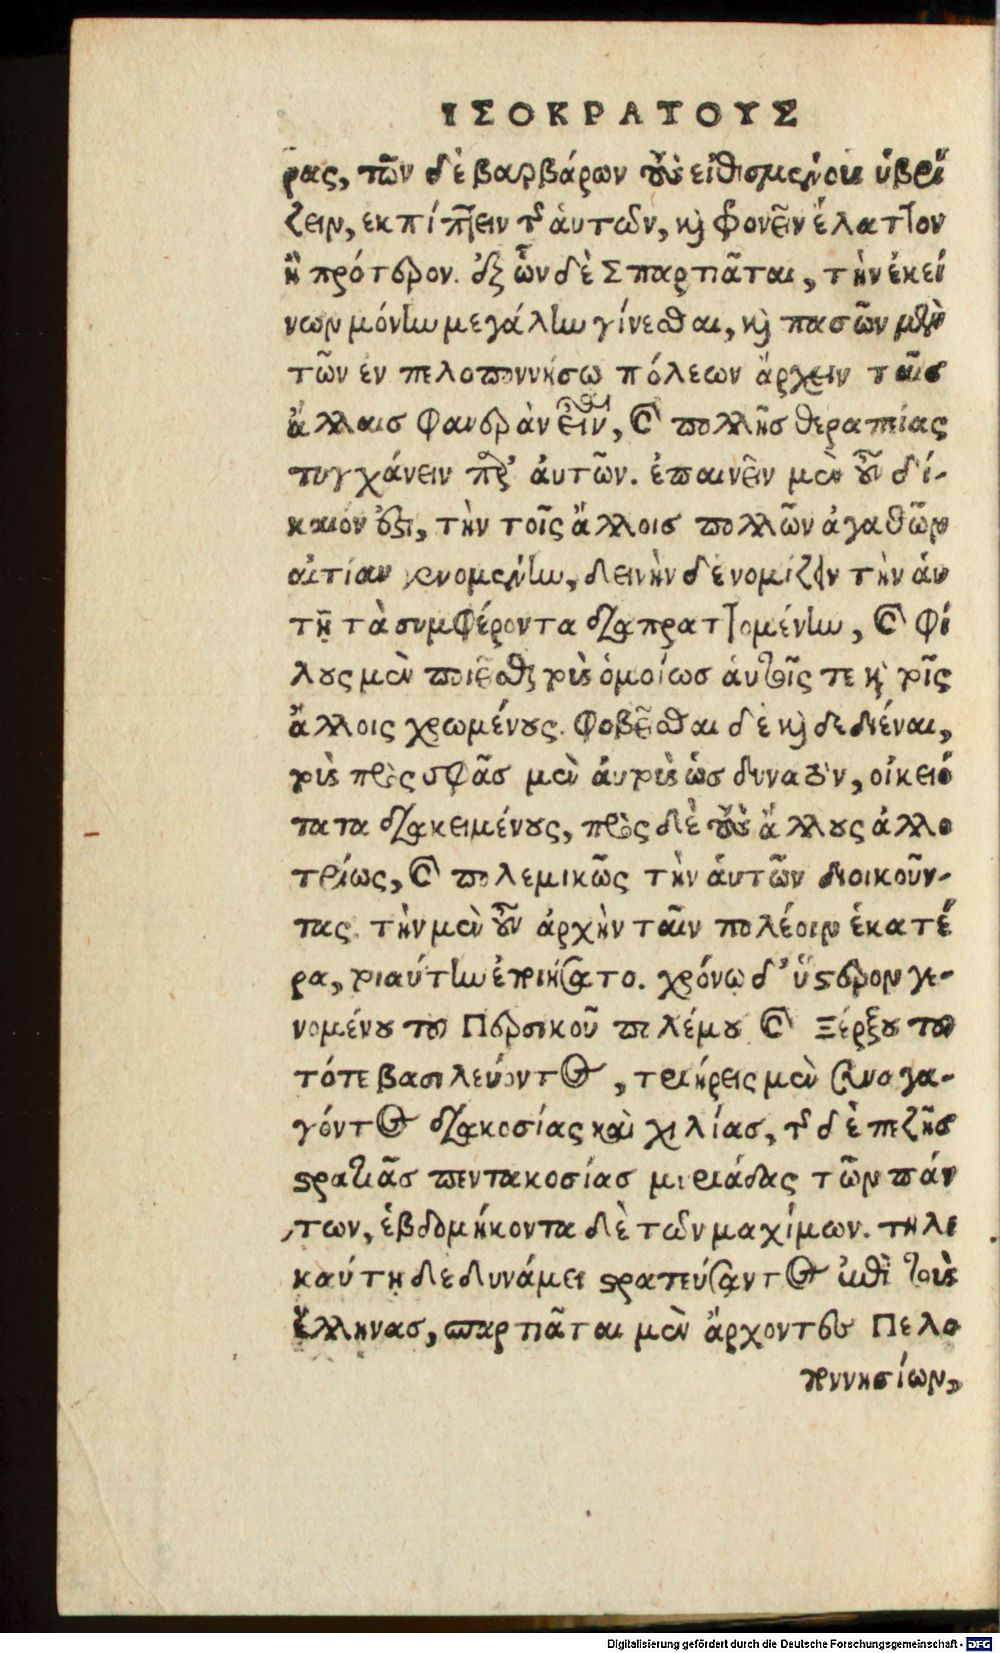 ΙΣΟΚΡΑΤΟΥΣ
ρας, τῶν δὲ βαρβάρων τοὺς εἰθισμένους ὑβρί
ζειν, ἐκπίπτειν τῆς ἁυτῶν, καὶ φρονεῖν ἔλαττον
ἢ πρότερον. ἐξ ὧν δὲ Σπαρτιᾶται, τὴν ἐκεί
νων μόνην μεγάλην γίνεσθαι, καὶ πασῶν μὲν
τῶν ἐν πελοποννήσῳ πόλεων ἄρχειν ταῖς
ἄλλαις φανερὰν εἶναι, καὶ πολλῆς θεραπείας
τυγχάνειν παρ’ ἀυτῶν. ἐπαινεῖν μὲν οὖν δί-
καιόν ἐστι, τὴν τοῖς ἄλλοις πολλῶν ἀγαθῶν
αἰτίαν γενομένην, δεινὴν δὲ νομίζειν τὴν ἁυ
τῇ τὰ συμφέροντα διαπραττομένην, καὶ φί
λους μὲν ποιεῖσθαι τοὺς ὁμοίως ἁυτοῖς τε καὶ τοῖς
ἄλλοις χρωμένους. φοβεῖσθαι δὲ καὶ δεδιέναι,
τοὺς πρὸς σφᾶς μὲν ἀυτοὺς ὡς δυνατὸν, οἰκειό
τατα διακειμένους, πρὸς δὲ τοὺς ἄλλους ἀλλο
τρίως, καὶ πολεμικῶς τὴν ἁυτῶν διοικοῦν-
τας. τὴν μὲν οὖν ἀρχὴν ταῖν πολέοιν ἑκατέ
ρα, τοιαύτην ἐποιήσατο. χρόνῳ δ’ ὕστερον γε-
νομένου τοῦ Περσικοῦ πολέμου καὶ Ξέρξου τοῦ
τότε βασιλεύοντος, τριήρεις μὲν συναγα-
γόντος διακοσίας καὶ χιλίας, τῆς δὲ πεζῆς
στρατιᾶς πεντακοσίας μυριάδας τῶν πάν
των, ἑβδομήκοντα δὲ τῶν μαχίμων. τηλι
καύτῃ δὲ δυνάμει στρατεύσαντος ἐπὶ τοὺς
ἕλληνας, σπαρτιᾶται μὲν ἄρχοντες Πελο
ποννησίων,
Digitalisierung gefördert durch die Deutsche Forschungsgemeinschaft - DFG